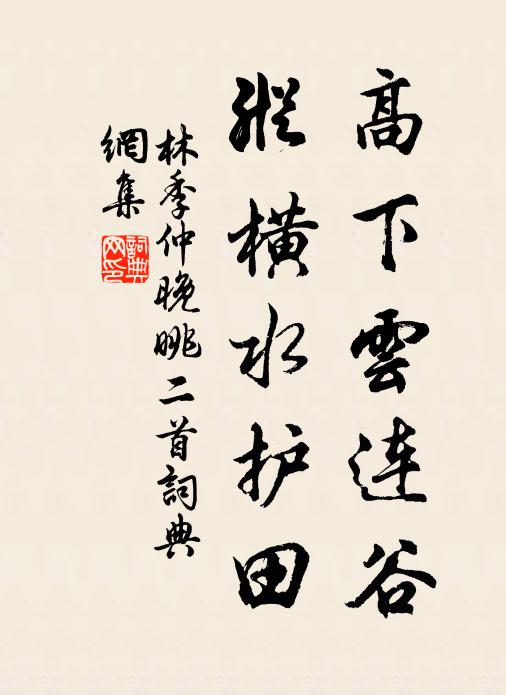 高下雲连谷
縱橫水护田
林季仲晚眺二首詞典
網集
詞典
网印